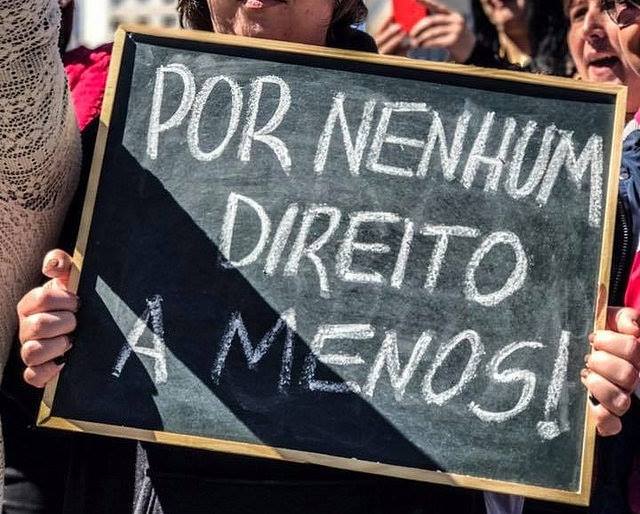 POR NENHUM
DIREITO
A MENOS!